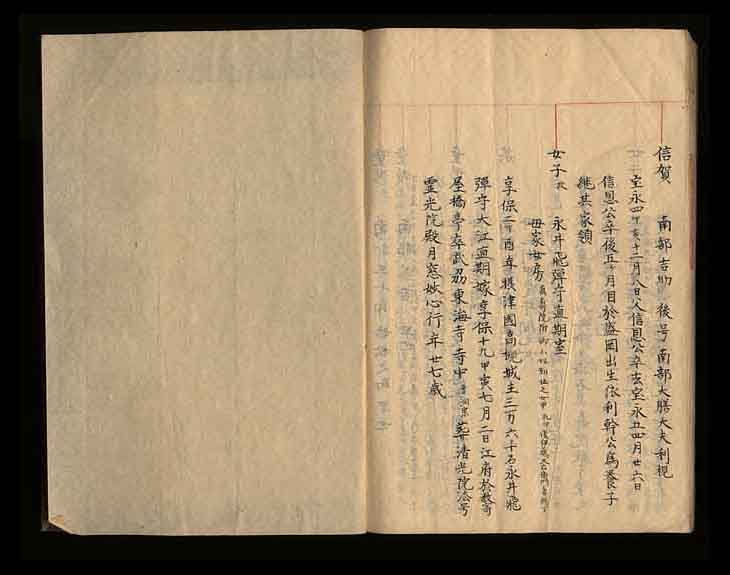 信賀　南部吉助　後号南部大膳大夫利視
宝永四丁亥十二月八日父信恩公卒去宝永五四月廿六日
信恩公卒後五ヶ月目於盛岡出生依利幹公為養子
継其家領
女子　永井飛弾守直期室
母家女房
享保二丁酉年摂津國高槻城主三万六千石永井飛
弾守大江直期嫁享保十九甲寅七月二日江府於数寄
屋橋亭卒武州東海寺寺中 葬清光院法号
霊光院殿月窓妙心行年廿七歳